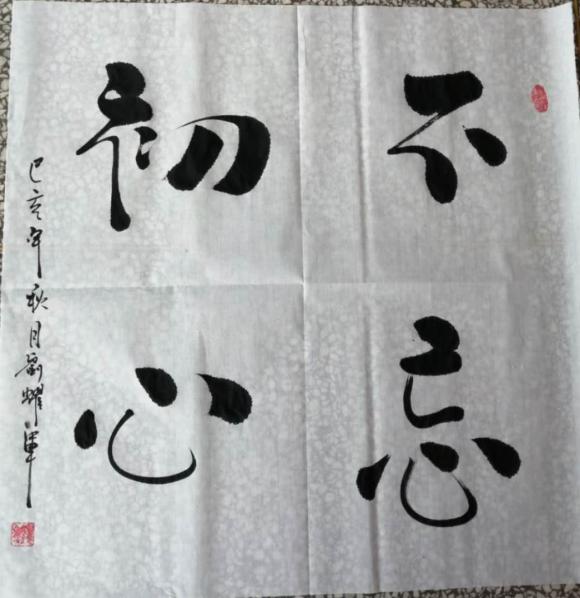 不忘
初心
己亥年秋月劉耀軍